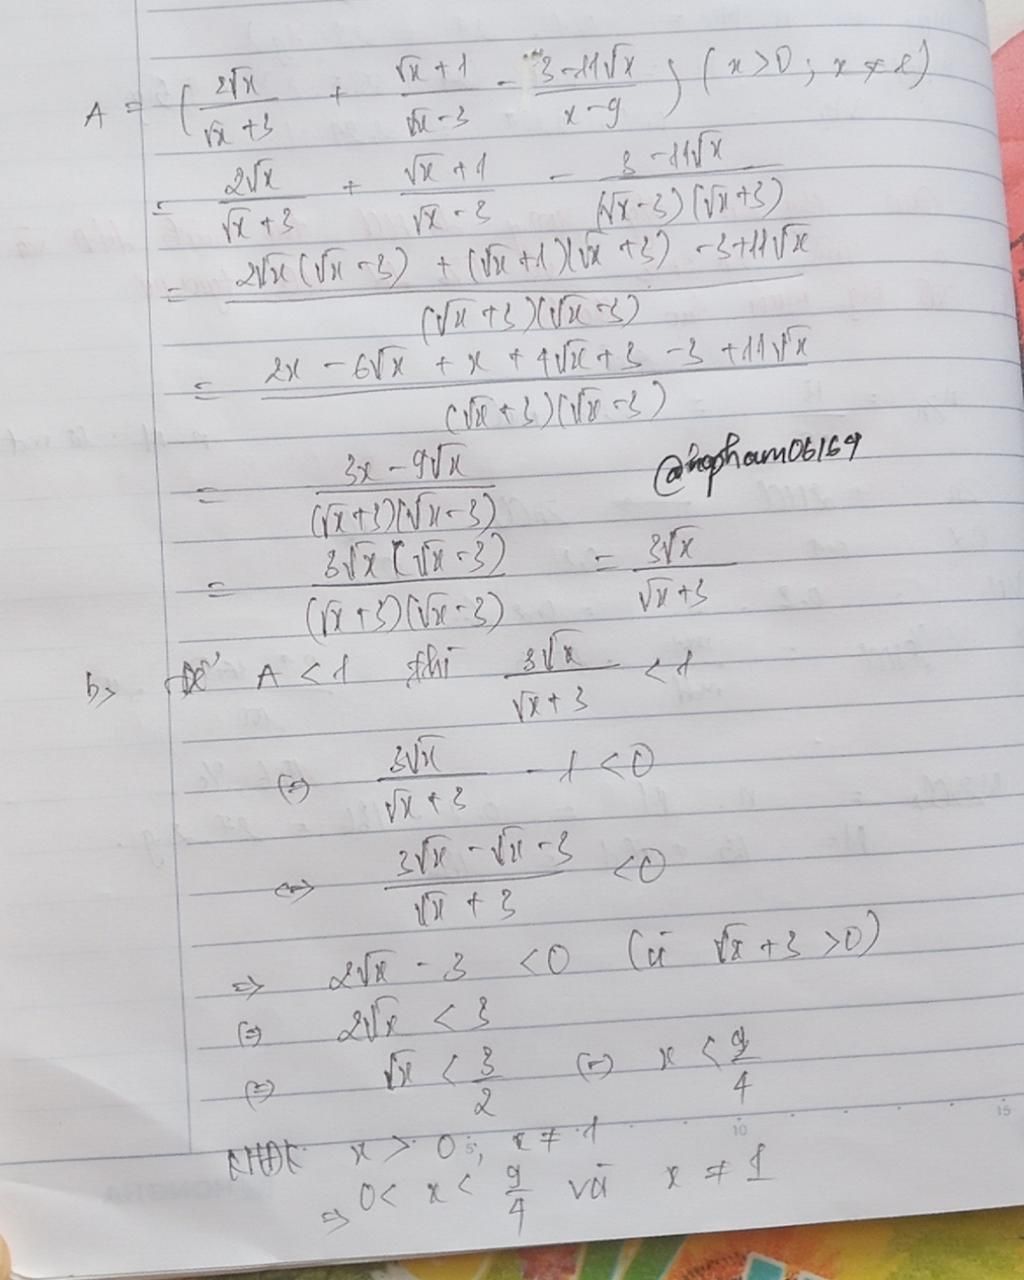 A = ( 2√x / (√x + 3) + (√x + 1) / (√x - 3) - (3 - 11√x) / (x - 9) ) (x > 0 ; x ≠ 1)
= 2√x / (√x + 3) + (√x + 1) / (√x - 3) - (3 - 11√x) / ((√x - 3)(√x + 3))
= (2√x(√x - 3) + (√x + 1)(√x + 3) - 3 + 11√x) / ((√x + 3)(√x - 3))
= (2x - 6√x + x + 4√x + 3 - 3 + 11√x) / ((√x + 3)(√x - 3))
= (3x - 9√x) / ((√x + 3)(√x - 3))
= 3√x(√x - 3) / ((√x + 3)(√x - 3)) = 3√x / (√x + 3)
b, Để A < 1 thì 3√x / (√x + 3) < 1
(=) 3√x / (√x + 3) - 1 < 0
<=> (3√x - √x - 3) / (√x + 3) < 0
=> 2√x - 3 < 0 (vì √x + 3 > 0)
(=) 2√x < 3
(=) √x < 3/2 (=) x < 9/4
x > 0 ; x ≠ 1
=> 0 < x < 9/4 và x ≠ 1
5
10
15